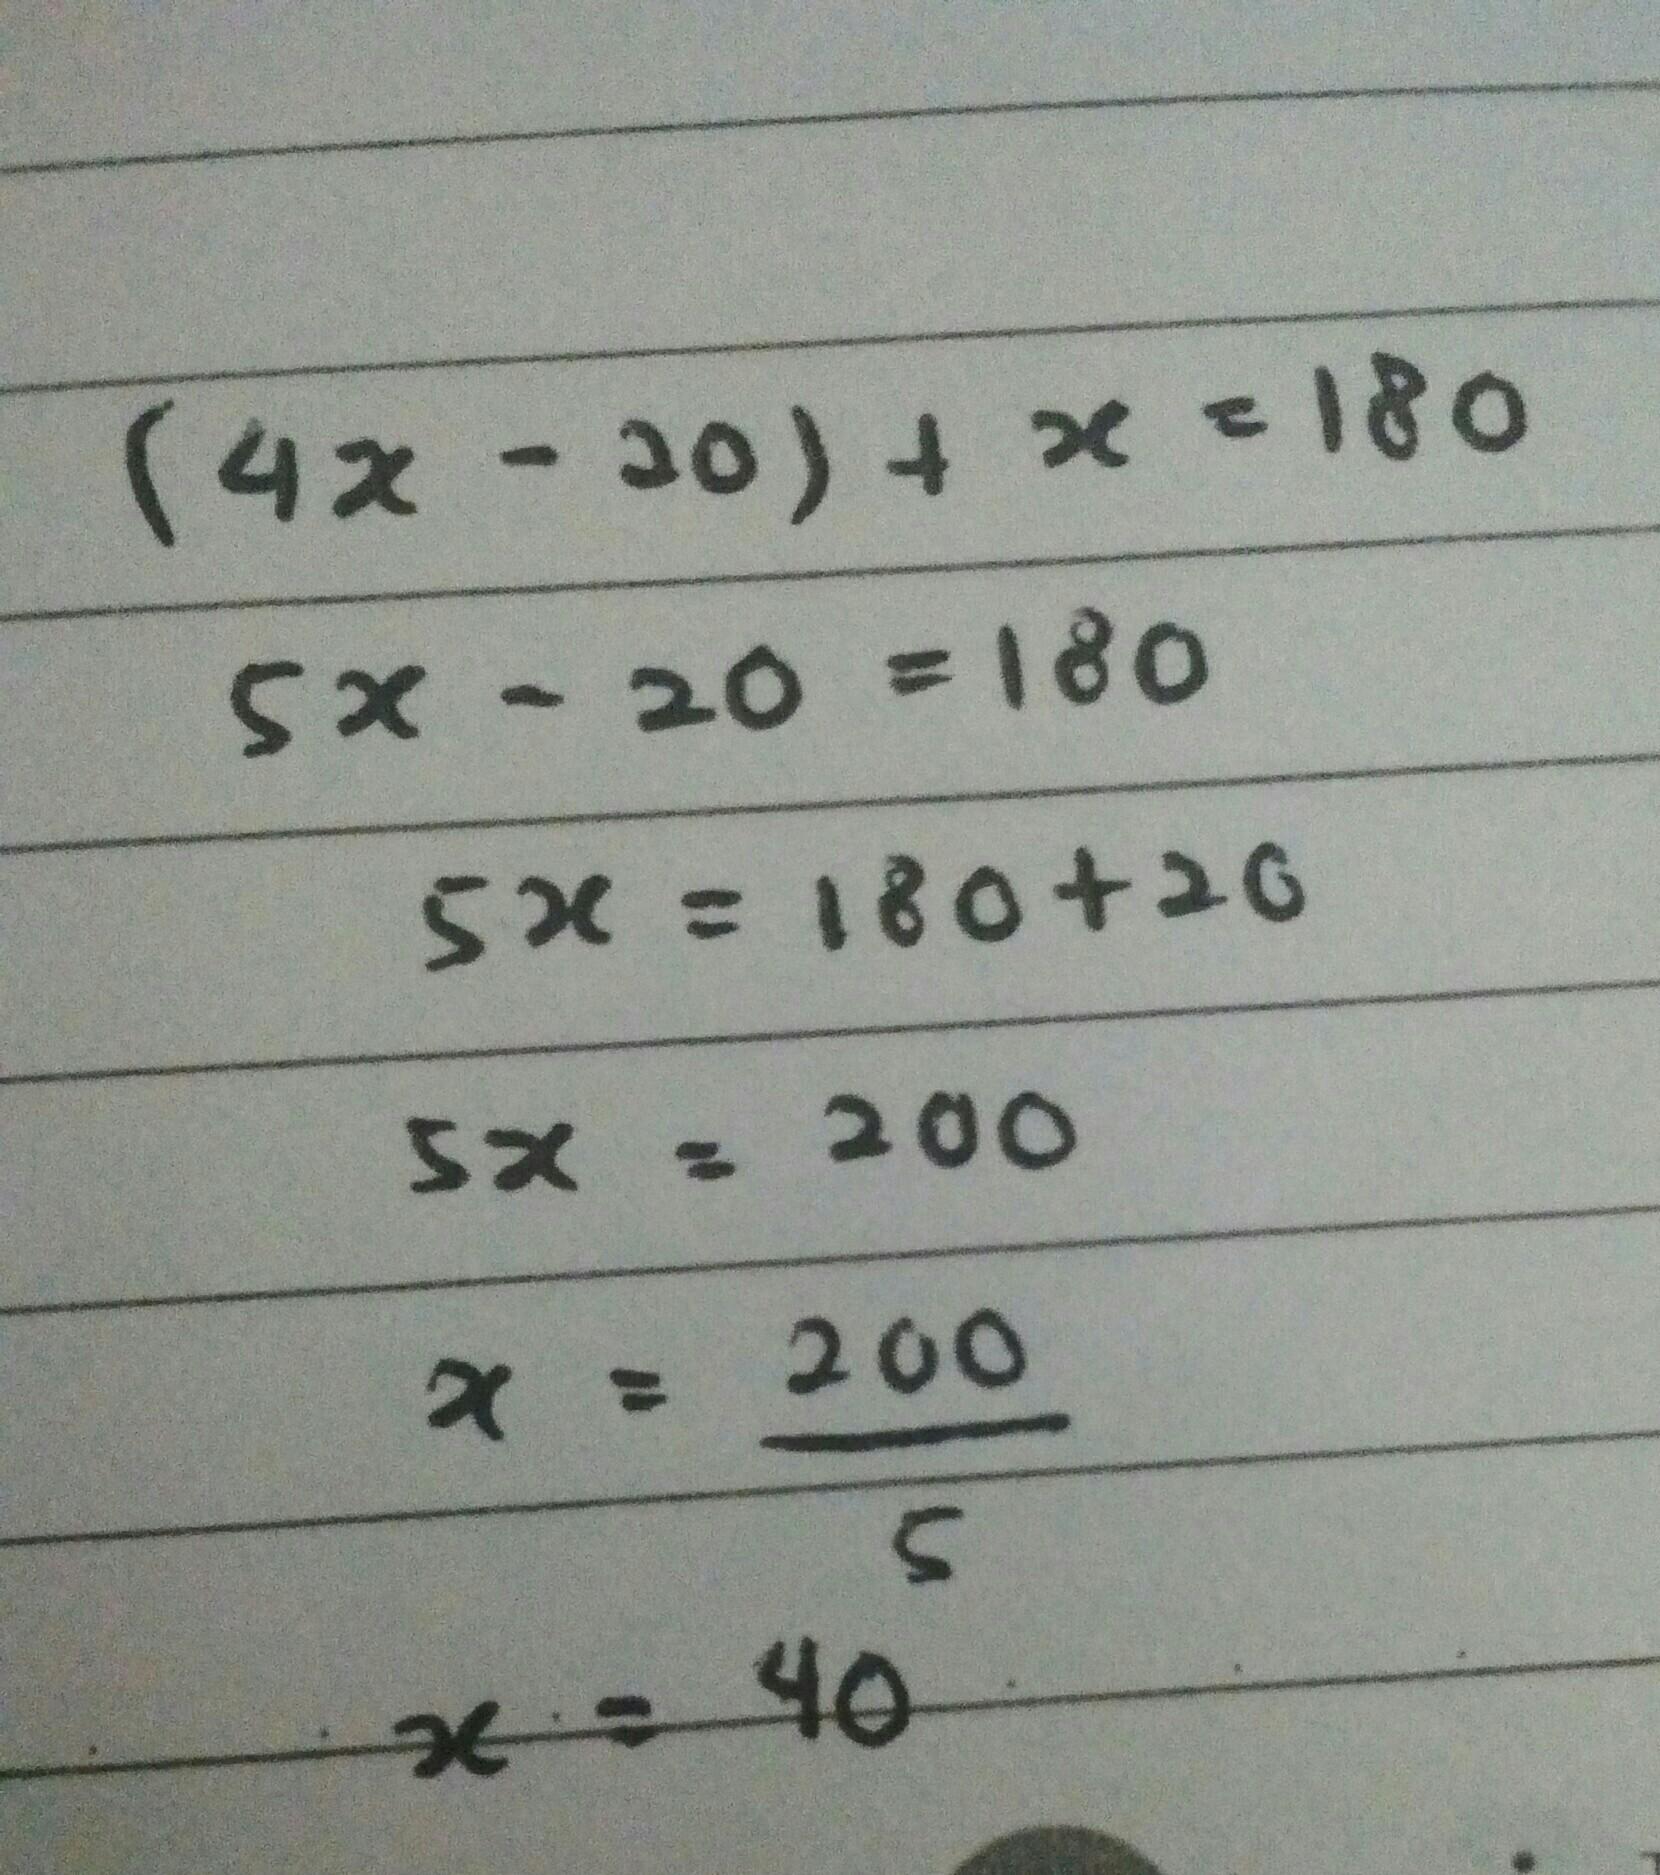 (4x - 20) + x = 180
5x - 20 = 180
5x = 180 + 20
5x = 200
x = 200
5
x = 40